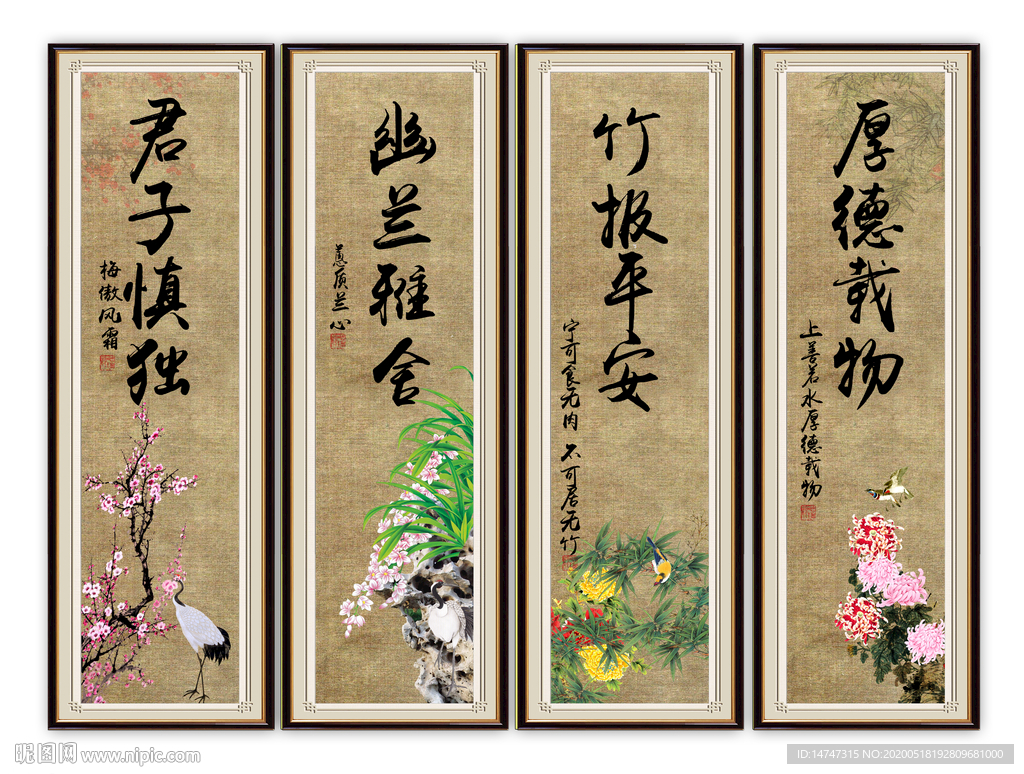 君子慎独
梅傲风霜
幽兰雅舍
蕙质兰心
竹报平安
宁可食无肉 不可居无竹
厚德载物
上善若水厚德载物
昵图网 www.nipic.com
ID:14747315 NO:20200518192809681000